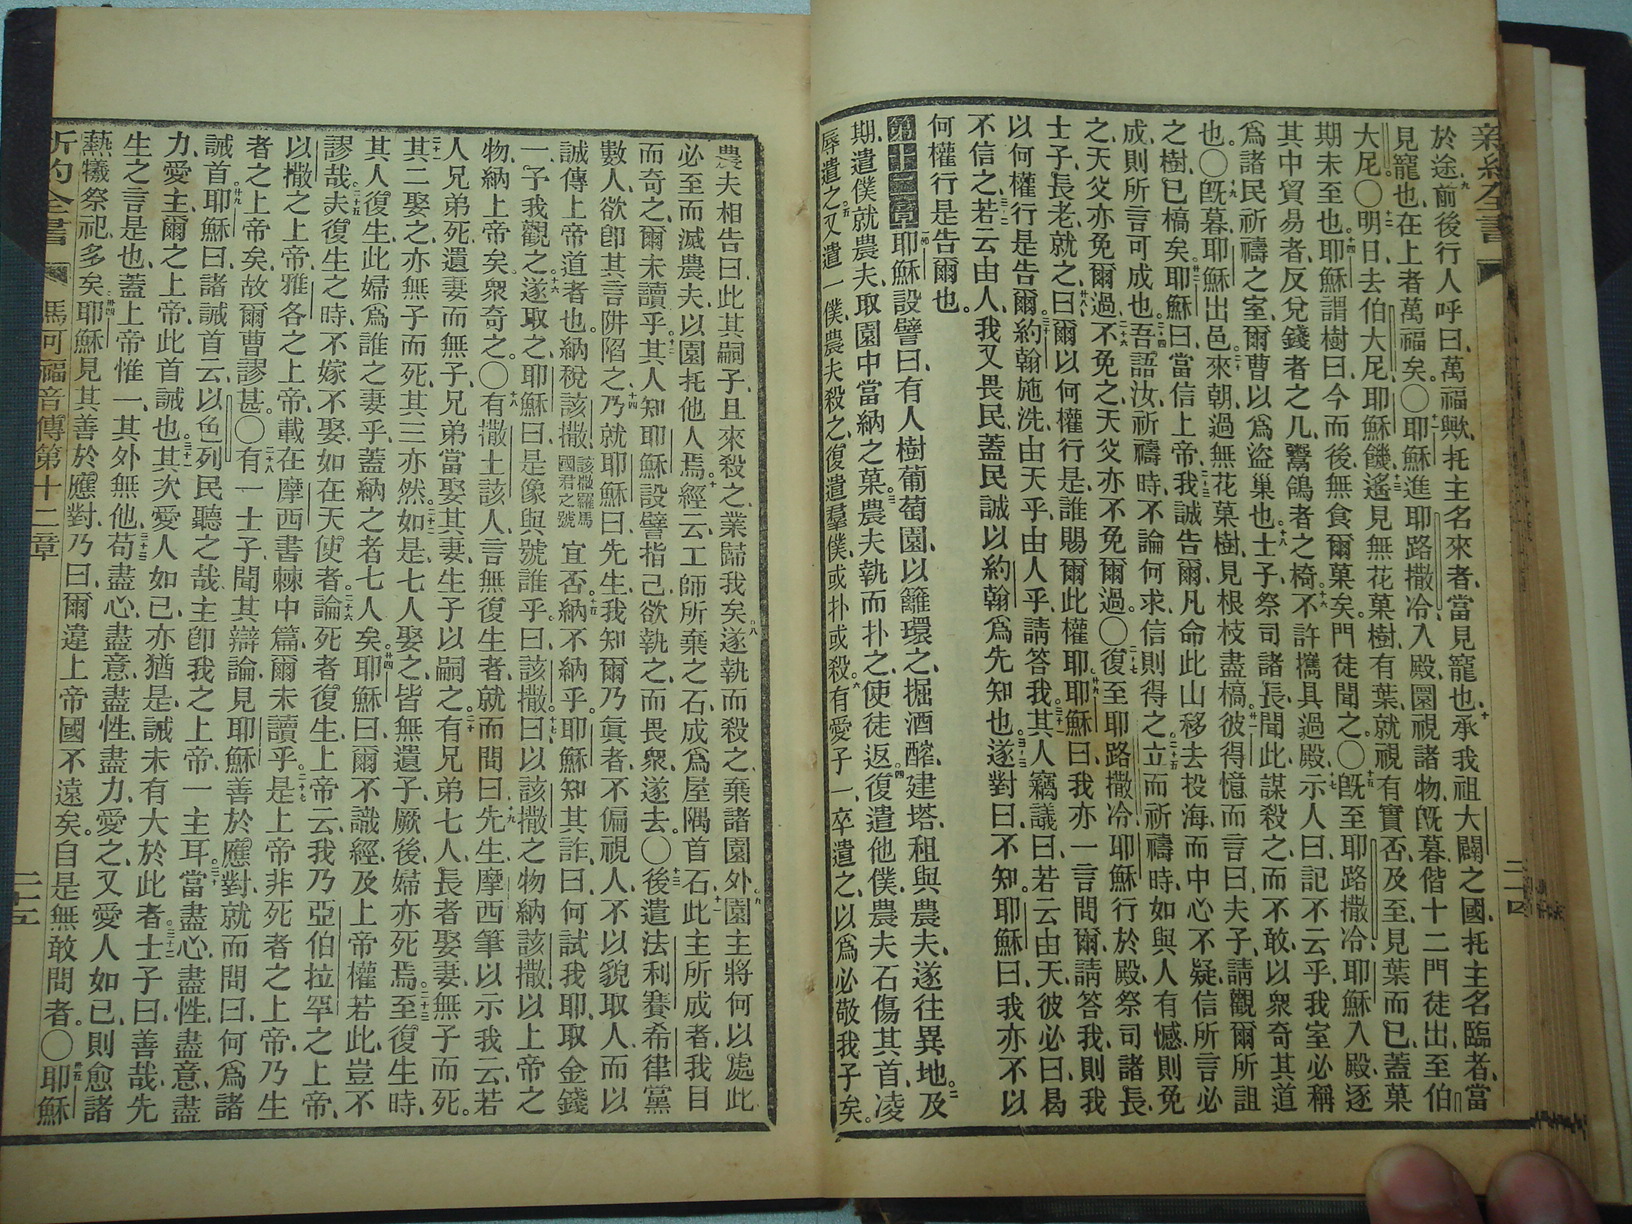 新約全書
二十四
於途前後行人呼曰、萬福歟、托主名來者、當見寵也、承我祖大闢之國、托主名臨者、當
見寵也、在上者萬福矣。〇耶穌進耶路撒冷、入殿、圜視諸物、旣暮、偕十二門徒出、至伯
大尼〇明日、去伯大尼、耶穌饑、遙見無花菓樹、有葉、就視有實否、及至、見葉而已、蓋菓
期未至也、耶穌謂樹曰、今而後、無食爾菓矣、門徒聞之。〇旣至耶路撒冷、耶穌入殿、逐
其中貿易者、反兌錢者之几、鬻鴿者之椅、不許攜具過殿、示人曰、記不云乎、我室必稱
爲諸民祈禱之室、爾曹以爲盜巢也、士子、祭司諸長、聞此、謀殺之、而不敢、以衆奇其道
也〇旣暮、耶穌出邑、來朝過無花菓樹、見根枝盡槁、彼得憶而言曰、夫子、請觀爾所詛
之樹、已槁矣、耶穌曰、當信上帝、我誠告爾、凡命此山移去投海、而中心不疑、信所言必
成、則所言可成也、吾語汝、祈禱時、不論何求、信則得之、立而祈禱時、如與人有憾則免
之、天父亦免爾過、不免之、天父亦不免爾過。〇復至耶路撒冷、耶穌行於殿、祭司諸長、
士子、長老、就之曰、爾以何權行是、誰賜爾此權耶、耶穌曰、我亦一言問爾、請答我、則我
以何權行是告爾、約翰施洗、由天乎、由人乎、請答我、其人竊議曰、若云由天、彼必曰、曷
不信之、若云由人、我又畏民、蓋民誠以約翰爲先知也、遂對曰、不知、耶穌曰、我亦不以
何權行是告爾也。
第十二章 耶穌設譬曰、有人樹葡萄園、以籬環之、掘酒醡、建塔、租與農夫、遂往異地。及
期、遣僕就農夫、取園中當納之菓、農夫執而扑之、使徒返、復遣他僕、農夫石傷其首、凌
辱遣之、又遣一僕、農夫殺之、復遣羣僕、或扑或殺、有愛子一、卒遣之、以爲必敬我子矣。
農夫相告曰、此其嗣子、且來殺之、業歸我矣、遂執而殺之、棄諸園外、園主將何以處此、
必至而滅農夫、以園托他人焉、經云、工師所棄之石、成爲屋隅首石、此主所成者、我目
而奇之、爾未讀乎、其人知耶穌設譬指己、欲執之、而畏衆、遂去、〇後遣𠵽唎賽希律黨
數人、欲卽其言阱陷之、乃就耶穌曰、先生、我知爾乃眞者、不偏視人、不以貌取人、而以
誠傳上帝道者也、納稅該撒該撒羅馬國君之號宜否、納不納乎、耶穌知其詐、曰、何試我耶、取金錢
一、予我觀之、遂取之、耶穌曰、是像與號誰乎、曰、該撒、曰、以該撒之物納該撒、以上帝之
物、納上帝矣。衆奇之。〇有撒土該人、言無復生者、就而問曰、先生、摩西筆以示我云、若
人兄弟死、遺妻而無子、兄弟當娶其妻、生子以嗣之、有兄弟七人、長者娶妻、無子而死。
其二娶之、亦無子而死、其三亦然。如是、七人娶之、皆無遺子、厥後、婦亦死焉、至復生時、
其人復生、此婦爲誰之妻乎、蓋納之者七人矣、耶穌曰、爾不識經、及上帝權若此、豈不
謬哉、夫復生之時、不嫁不娶、如在天使者、論死者復生、上帝云、我乃亞伯拉罕之上帝、
以撒之上帝、雅各之上帝、載在摩西書棘中篇、爾未讀乎、是上帝非死者之上帝、乃生
者之上帝矣、故爾曹謬甚。〇有一士子、聞其辯論、見耶穌善於應對、就而問曰、何爲諸
誡首、耶穌曰、諸誡首云、以色列民聽之哉、主卽我之上帝、一主耳、當盡心、盡性、盡意、盡
力、愛主、爾之上帝、此首誡也、其次、愛人如己、亦猶是、誡未有大於此者、士子曰、善哉、先
生之言是也、蓋上帝惟一、其外無他、苟盡心、盡意、盡性、盡力、愛之、又愛人如己、則愈諸
爇犧祭祀多矣、耶穌見其善於應對、乃曰、爾違上帝國不遠矣。自是無敢問者。〇耶穌
新約全書 馬可福音傳第十二章 二十五